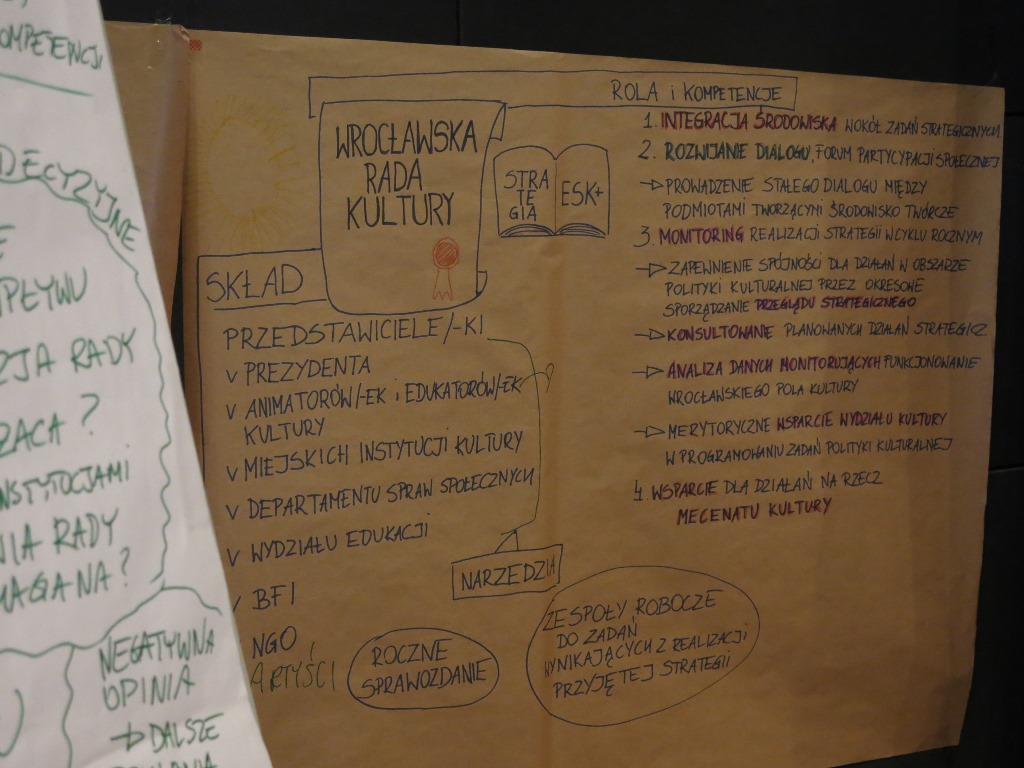 OMPETENCJI
DECYZYJNE
WPŁYWU
ZJA RADY
ZACA?
INSTYTUCJAMI
NIA RADY
MAGANA?
NEGATYWNA
OPINIA
→ DALSZE
WROCŁAWSKA
RADA
KULTURY
STRA
TE
GIA
ESK+
SKŁAD
PRZEDSTAWICIELE/-KI
v PREZYDENTA
v ANIMATORÓW/-EK i EDUKATORÓW/-EK
KULTURY
v MIEJSKICH INSTYTUCJI KULTURY
v DEPARTAMENTU SPRAW SPOŁECZNYCH
v WYDZIAŁU EDUKACJI
v BFI
NGO
ARTYŚCI
NARZEDZIA
ROCZNE
SPRAWOZDANIE
ZESPOŁY ROBOCZE
DO ZADAŃ
WYNIKAJĄCYCH Z REALIZACJI
PRZYJĘTEJ STRATEGII
ROLA i KOMPETENCJE
1. INTEGRACJA ŚRODOWISKA WOKÓŁ ZADAŃ STRATEGICZNYCH
2. ROZWIJANIE DIALOGU, FORUM PARTYCYPACJI SPOŁECZNEJ
→ PROWADZENIE STAŁEGO DIALOGU MIĘDZY
PODMIOTAMI TWORZĄCYMI ŚRODOWISKO TWÓRCZE
3. MONITORING REALIZACJI STRATEGII W CYKLU ROCZNYM
→ ZAPEWNIENIE SPÓJNOŚCI DLA DZIAŁAŃ W OBSZARZE
POLITYKI KULTURALNEJ PRZEZ OKRESOWE
SPORZĄDZANIE PRZEGLĄDU STRATEGICZNEGO
→ KONSULTOWANIE PLANOWANYCH DZIAŁAŃ STRATEGICZ
→ ANALIZA DANYCH MONITORUJĄCYCH FUNKCJONOWANIE
WROCŁAWSKIEGO POLA KULTURY
→ MERYTORYCZNE WSPARCIE WYDZIAŁU KULTURY
W PROGRAMOWANIU ZADAŃ POLITYKI KULTURALNEJ
4. WSPARCIE DLA DZIAŁAŃ NA RZECZ
MECENATU KULTURY